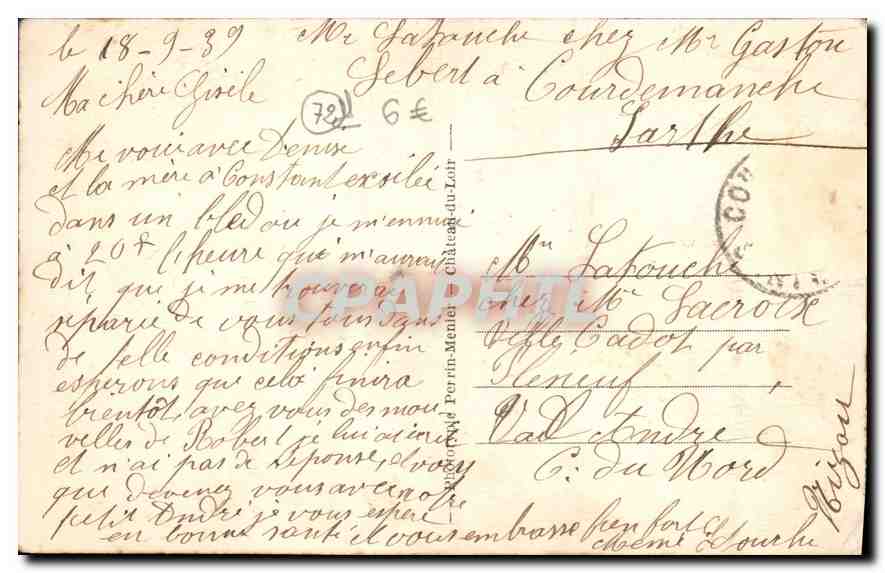 le 18-9-39
Mr Latouche chez Mr Gaston
Lebert à
Courdemanche
Sarthe
Ma chère Gisèle
72
6 €
Me voici avec Denise
et la mère à Constant exsilée
dans un bled ou je m'ennui
à 20f l'heure qui m'auray
dit que je me trouverai
séparée de vous tous dans
de telle conditions enfin
esperons que cela finira
bientôt, avez vous des nou
velles de Robert je lui ai écrit
et n'ai pas de réponse, et vous
que devenez vous avec notre
petit André je vous espère
en bonne santé et vous embrasse bien fort
Mémé Latouche
Phototypie Perrin-Menier Château-du-Loir
CO
Mme Latouche
chez Mr Lacroix
Ville Cadot par
Pléneuf
Val André
C. du Nord
CPAPHIL